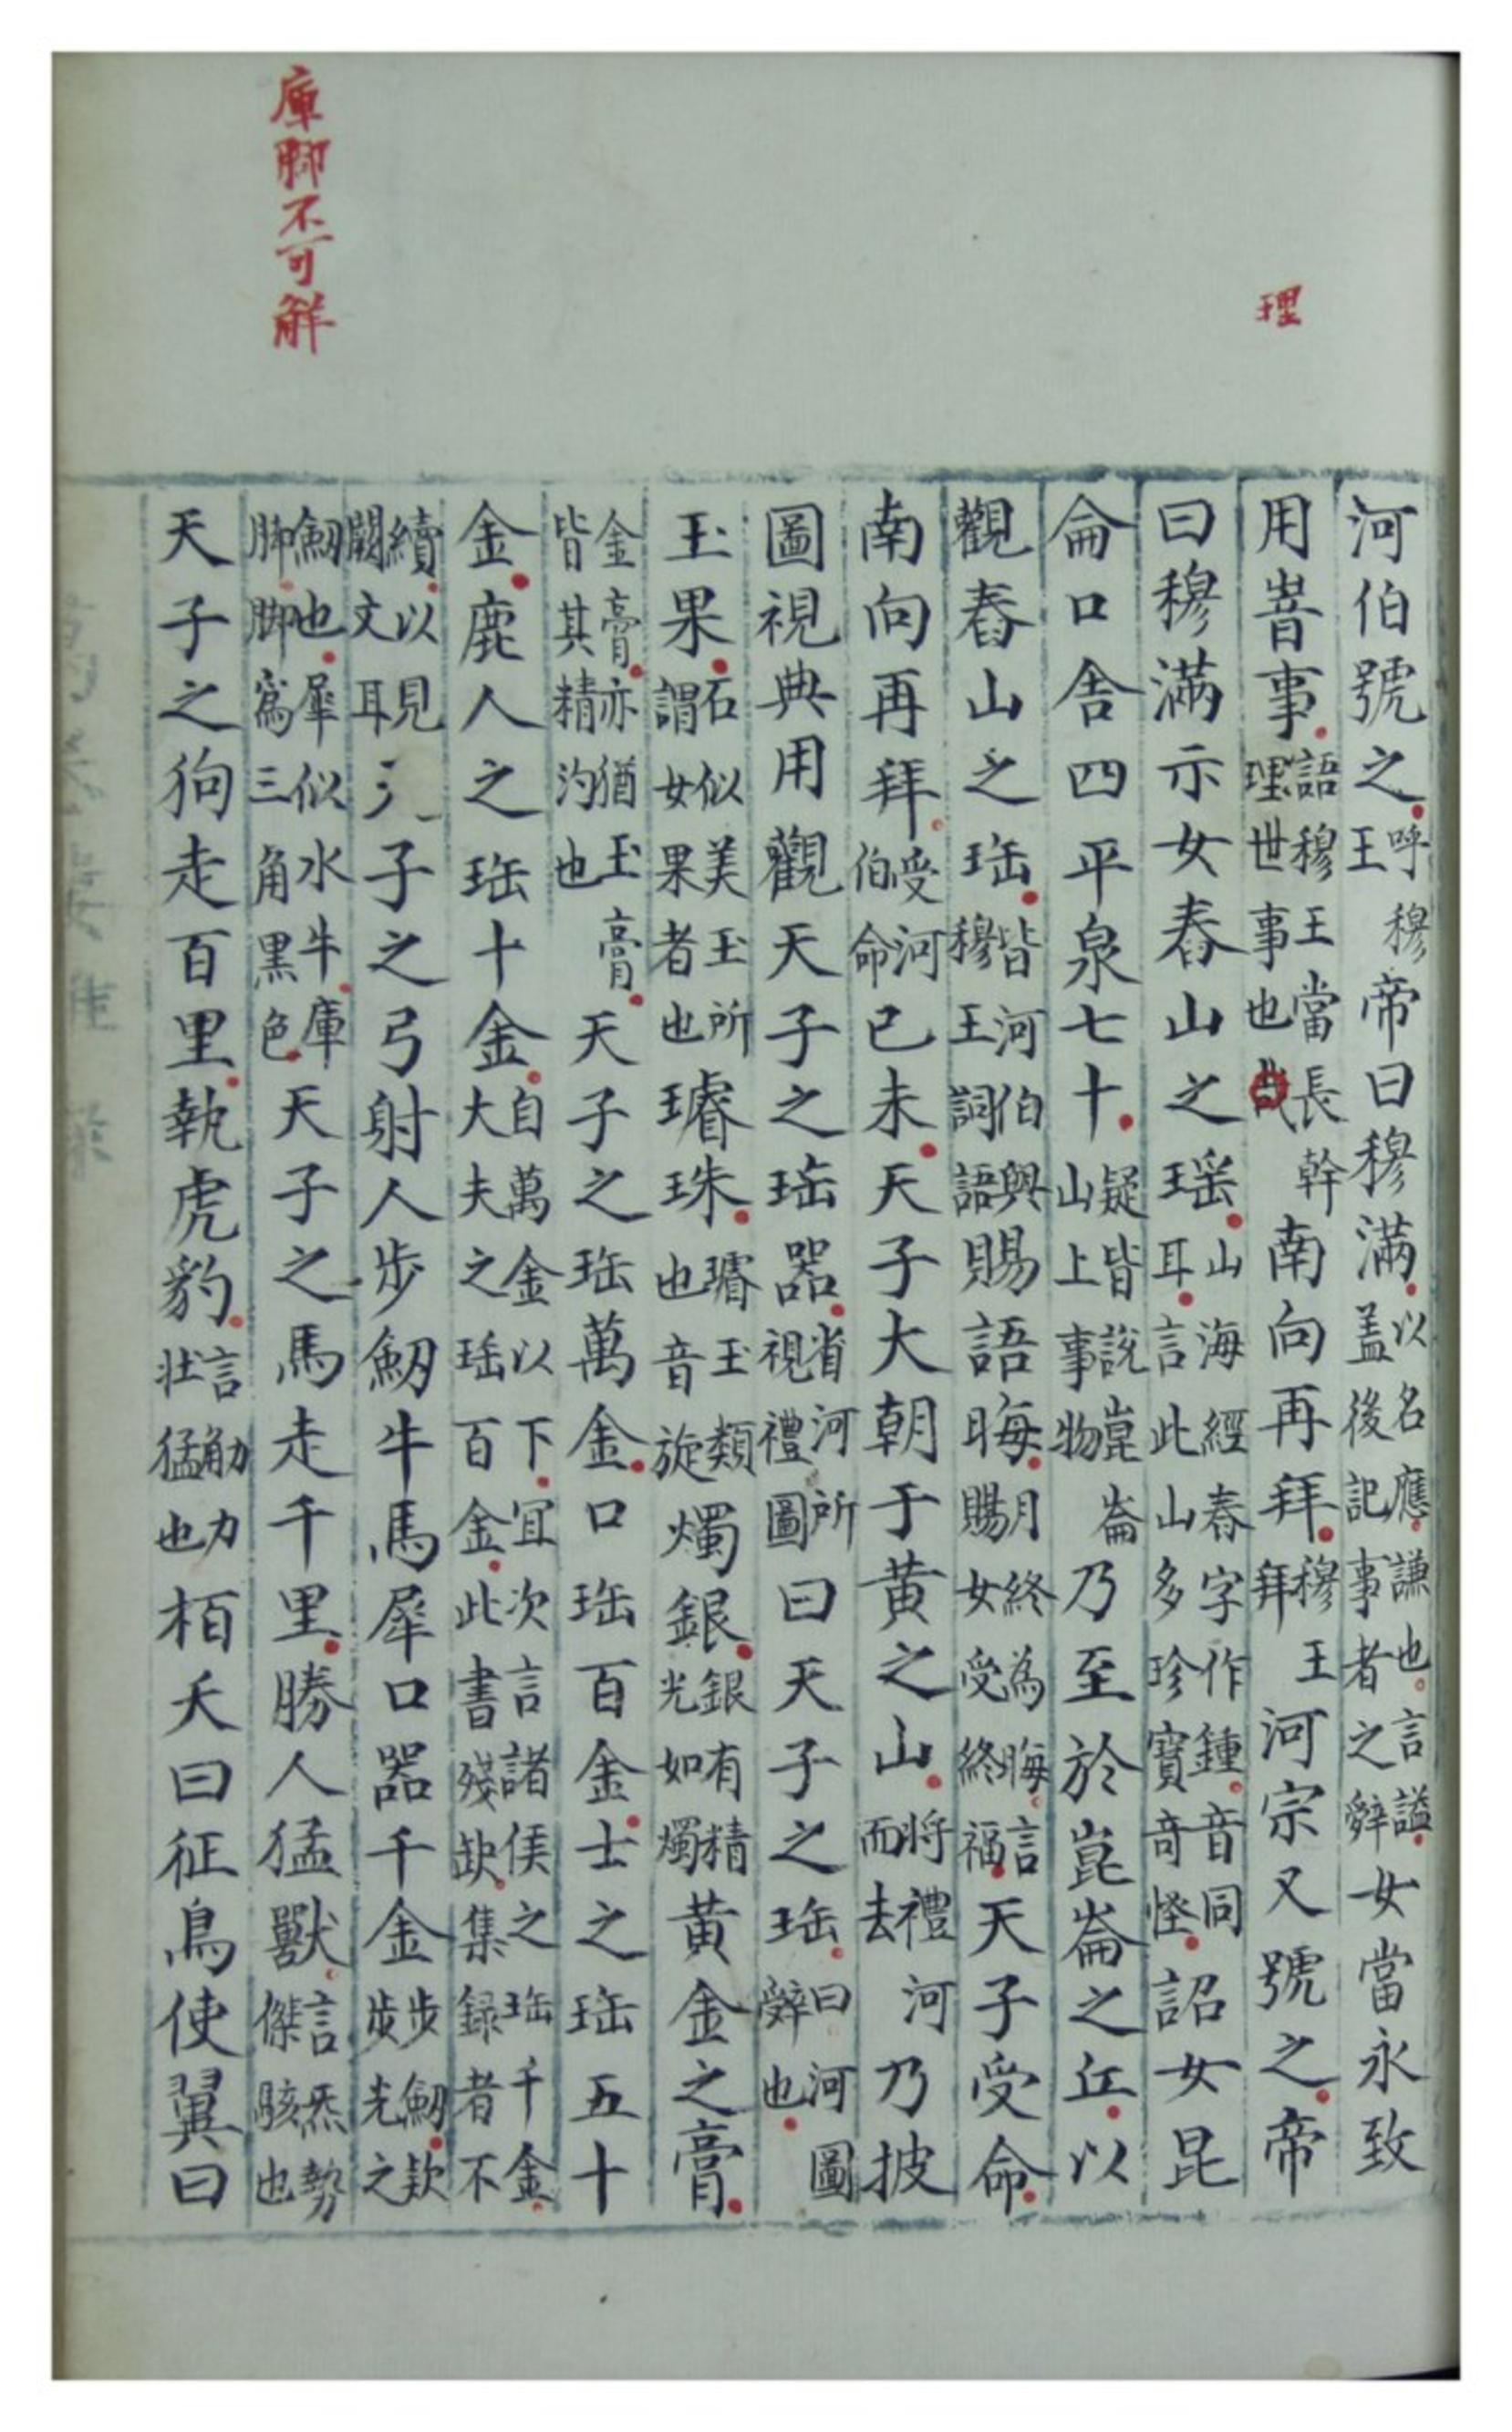 理
庫脚不可解
河伯號之呼穆王帝曰穆滿以名應謙也言謚蓋後記事者之辭女當永致
用旹事語穆王當長幹理世事也南向再拜穆王拜河宗又號之帝
曰穆滿示女舂山之瑶山海經舂字作鍾音同耳言此山多珍寶奇怪詔女昆
侖口舍四平泉七十疑皆說崑崙山上事物乃至於崑崙之丘以
觀舂山之珤皆河伯與穆王詞語賜語晦月終為晦言賜女受終福天子受命
南向再拜受河伯命已未天子大朝于黃之山將禮河而去乃披
圖視典用觀天子之珤器省河所禮圖視曰天子之珤曰河圖辭也
玉果石似美玉所謂女果者也璿珠璿玉類也音旋燭銀銀有精光如燭黃金之膏
金膏亦猶玉膏皆其精汋也天子之珤萬金口珤百金士之珤五十
金鹿人之珤十金自萬金以下宜次言諸侯之珤千金大夫之珤百金此書殘缺集録者不
續以見闕文耳子之弓射人步劒牛馬犀口器千金步劒欵步光之
劒也犀似水牛庫脚脚爲三角黑色天子之馬走千里勝人猛獸言炁勢傑駭也
天子之狗走百里執虎豹言觔力壯猛也栢夭曰征鳥使翼曰